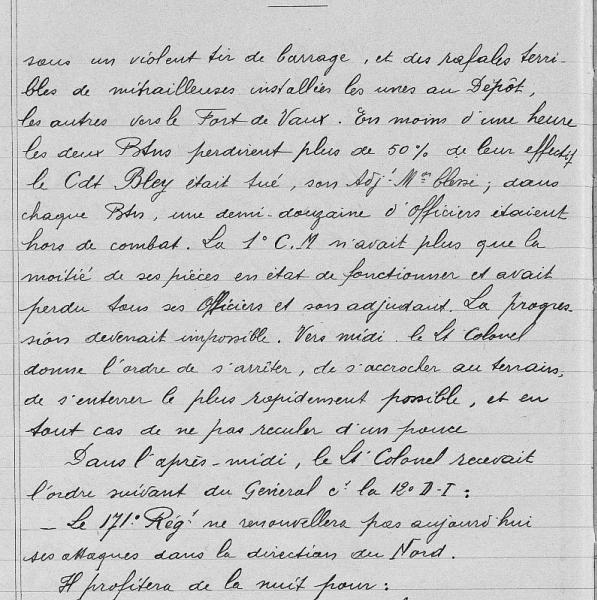 sous un violent tir de barrage, et des rafales terri-
bles de mitrailleuses installées les unes au Dépôt,
les autres vers le Fort de Vaux. En moins d'une heure
les deux Btns perdirent plus de 50% de leur effectif
le Cdt Bley était tué, son Adjt Mor blessé; dans
chaque Btn, une demi-douzaine d'Officiers étaient
hors de combat. La 1° C.M n'avait plus que la
moitié de ses pièces en état de fonctionner et avait
perdu tous ses Officiers et son adjudant. La progres-
sion devenait impossible. Vers midi le Lt Colonel
donne l'ordre de s'arrêter, de s'accrocher au terrain,
de s'enterrer le plus rapidement possible, et en
tout cas de ne pas reculer d'un pouce
Dans l'après-midi, le Lt Colonel recevait
l'ordre suivant du Général ct la 12° D-I:
- Le 171° Régt ne renouvellera pas aujourd'hui
ses attaques dans la direction du Nord.
Il profitera de la nuit pour: